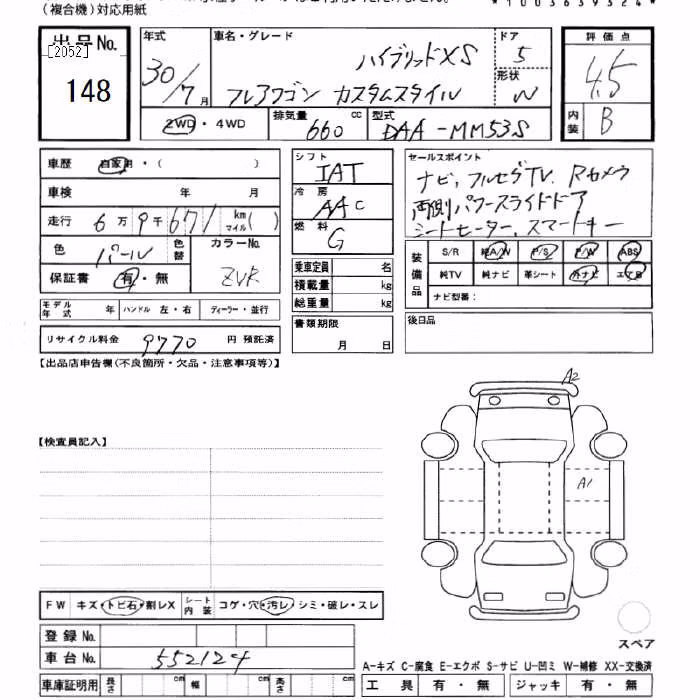 (複合機)対応用紙
出品No.
[2052]
148
年式
30/7月
車名・グレード
ハイブリッドXS
フレアワゴン カスタムスタイル
ドア
5
形状
W
評価点
4.5
内装
B
2WD・4WD
排気量
660 cc
型式
DAA-MM53S
車歴 自家用・( )
車検 年 月
走行 6万9千671 km マイル( )
色 パール
色替
カラーNo.
ZVR
保証書 有・無
モデル年式 年 ハンドル 左・右 ディーラー・並行
リサイクル料金 9770 円 預託済
シフト
IAT
冷房
AAC
燃料
G
乗車定員 名
積載量 kg
総重量 kg
書類期限
月 日
セールスポイント
ナビ,フルセグTV.Rカメラ
両側パワースライドドア
シートヒーター,スマートキー
装備品
S/R 純A/W P/S P/W ABS
純TV 純ナビ 革シート 外ナビ エアB
ナビ型番:
後日品
【出品店申告欄(不良箇所・欠品・注意事項等)】
【検査員記入】
A2
A1
FW キズ・トビ石・割レX シート内装 コゲ・穴・汚レ・シミ・破レ・スレ
登録No.
車台No. 552124
車庫証明用 長さ cm 幅 cm 高さ cm
スペア
A-キズ C-腐食 E-エクボ S-サビ U-凹ミ W-補修 XX-交換済
工具 有・無 ジャッキ 有・無